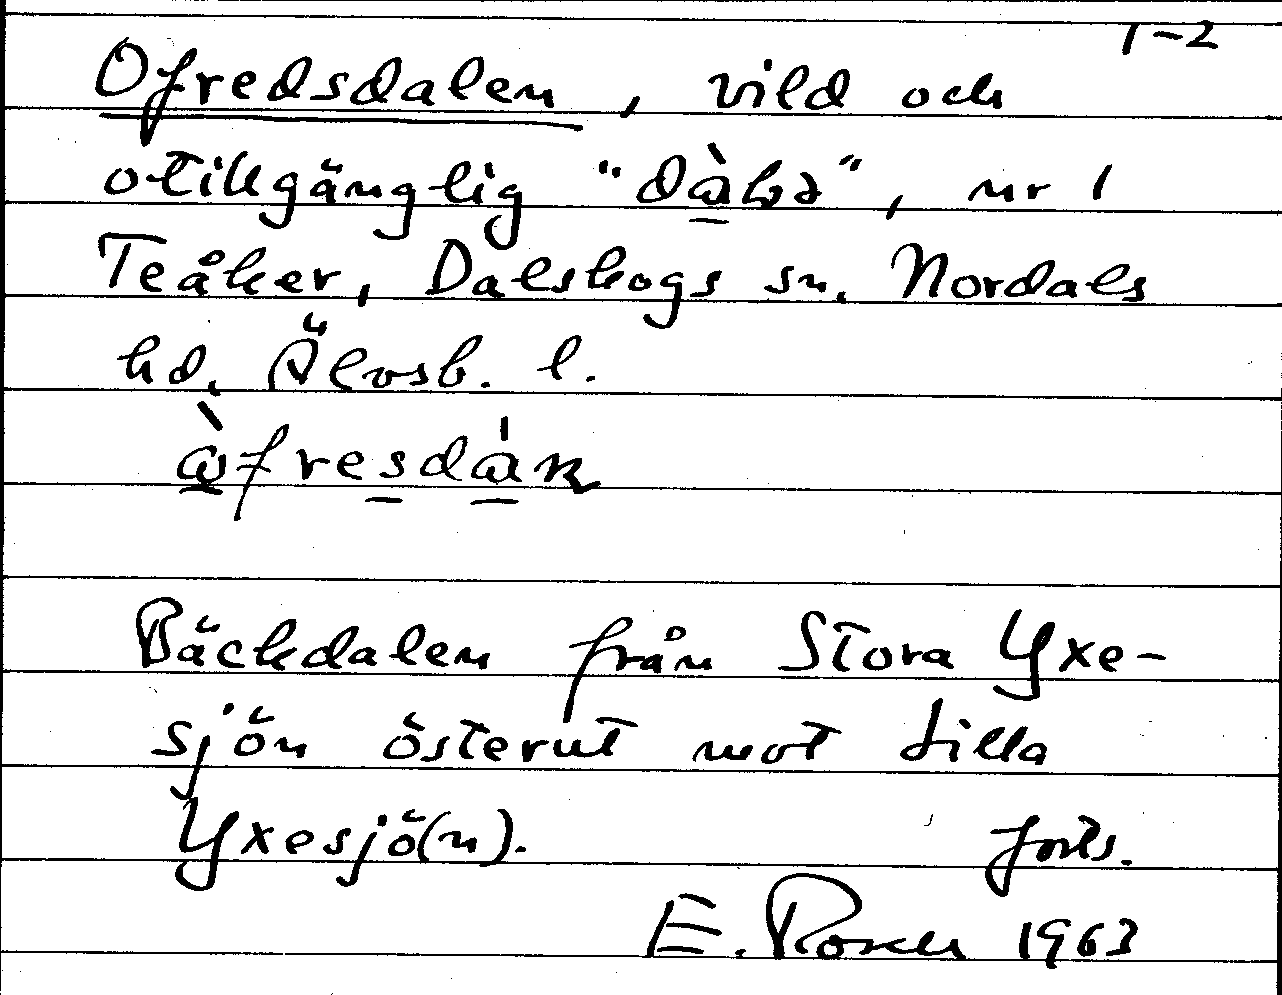 1-2
Ofredsdalen, vild och
otillgänglig "dàhə", nr 1
Teåker, Dalskogs sn. Nordals
hd. Älvsb. l.
àfresdán
Bäckdalen från Stora Yxe-
sjön österut mot Lilla
Yxesjö(n). forts.
E. Rosell 1963